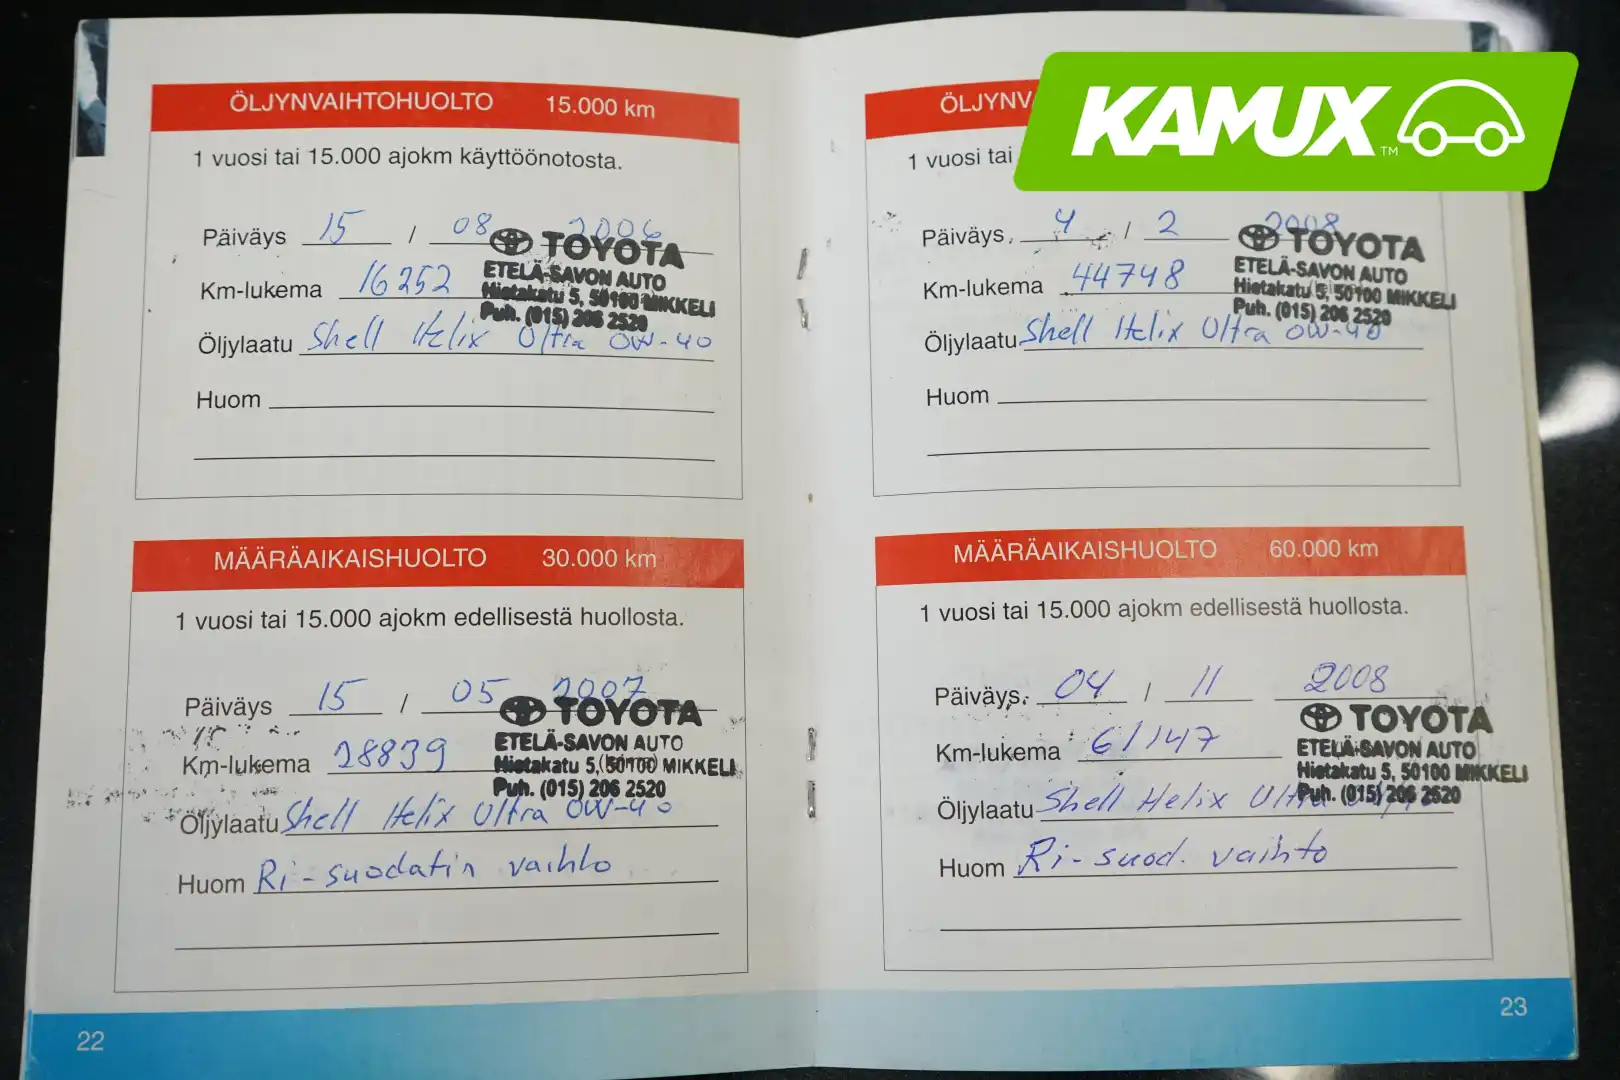 KAMUX™
ÖLJYNVAIHTOHUOLTO 15.000 km
1 vuosi tai 15.000 ajokm käyttöönotosta.
Päiväys 15 / 08 2006
TOYOTA
ETELÄ-SAVON AUTO
Hietakatu 5, 50100 MIKKELI
Puh. (015) 206 2520
Km-lukema 16252
Öljylaatu Shell Helix Ultra 0W-40
Huom
MÄÄRÄAIKAISHUOLTO 30.000 km
1 vuosi tai 15.000 ajokm edellisestä huollosta.
Päiväys 15 / 05 2007
TOYOTA
ETELÄ-SAVON AUTO
Hietakatu 5, 50100 MIKKELI
Puh. (015) 206 2520
Km-lukema 28839
Öljylaatu Shell Helix Ultra 0W-40
Huom Ri-suodatin vaihto
22
ÖLJYNV
1 vuosi tai
Päiväys. 4 / 2 2008
TOYOTA
ETELÄ-SAVON AUTO
Hietakatu 5, 50100 MIKKELI
Puh. (015) 206 2520
Km-lukema 44748
Öljylaatu Shell Helix Ultra 0W-40
Huom
MÄÄRÄAIKAISHUOLTO 60.000 km
1 vuosi tai 15.000 ajokm edellisestä huollosta.
Päiväys. 04 / 11 2008
TOYOTA
ETELÄ-SAVON AUTO
Hietakatu 5, 50100 MIKKELI
Puh. (015) 206 2520
Km-lukema 61147
Öljylaatu Shell Helix Ultra
Huom Ri-suod. vaihto
23